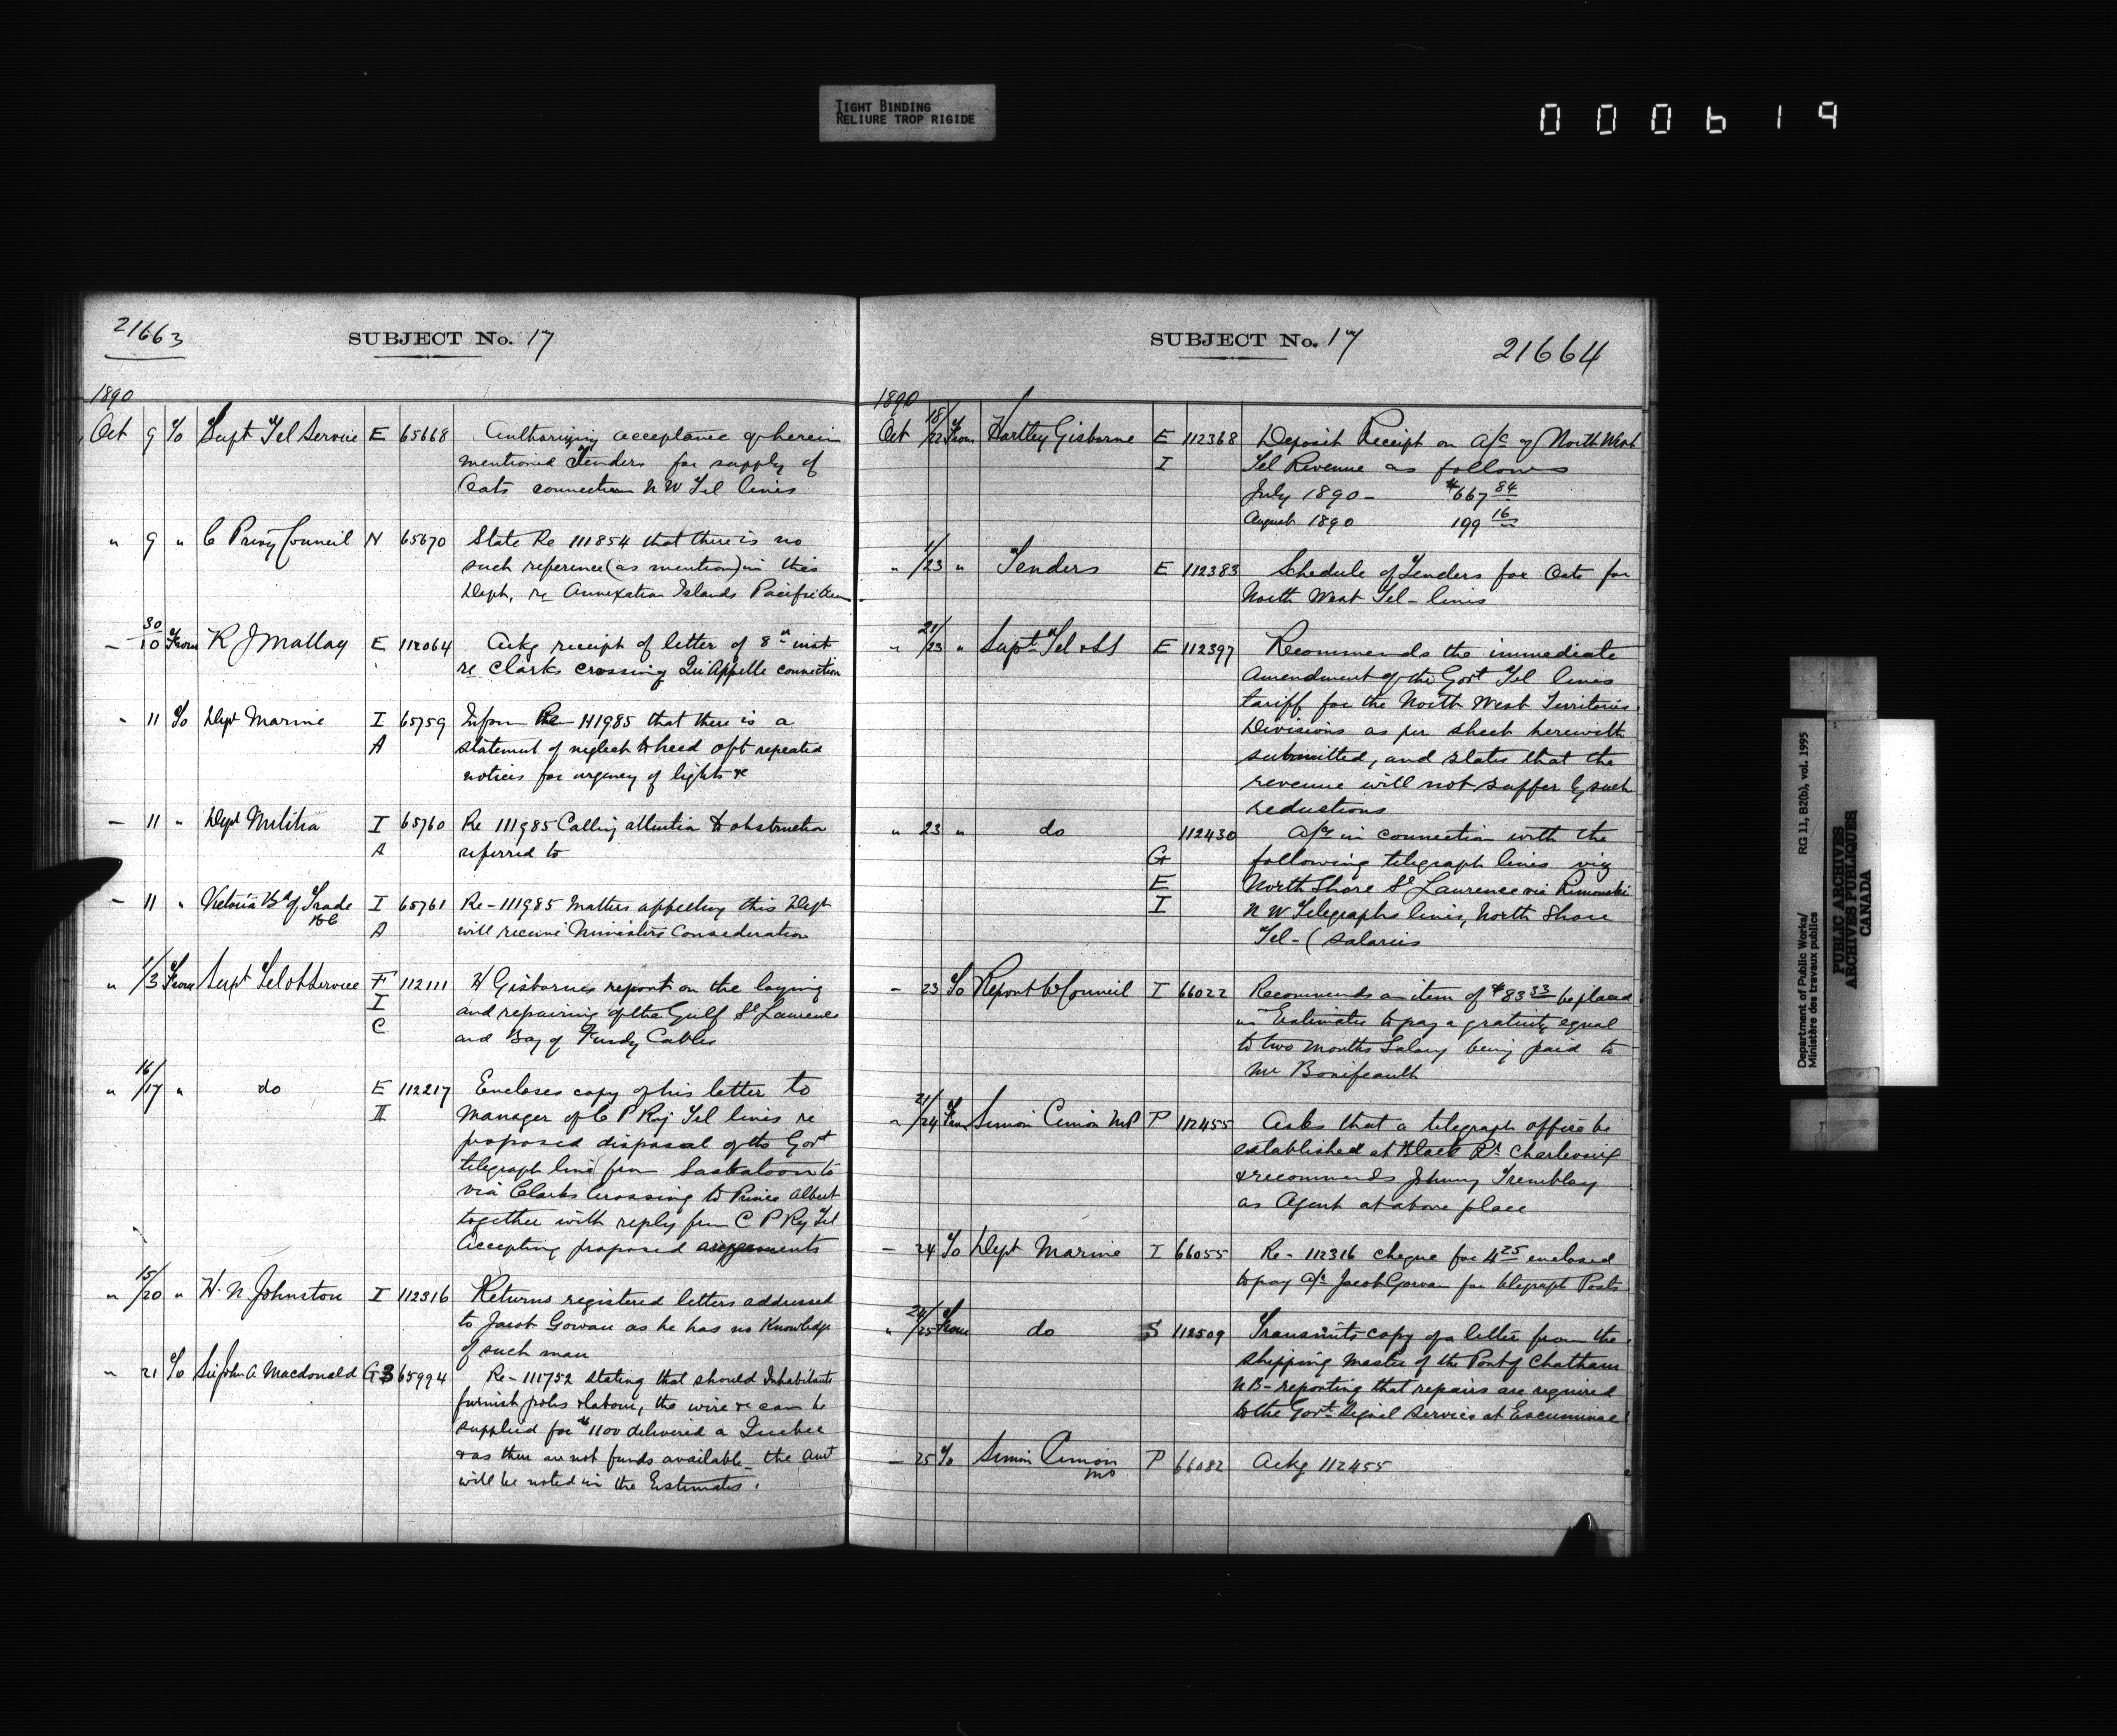 TIGHT BINDING
RELIURE TROP RIGIDE
000619
21663
SUBJECT No. 17
1890
Oct 9 To Supt Tel Service E 65668 Authorizing acceptance of herein
mentioned Tenders for supply of
Oats connection N W Tel lines
" 9 " C Privy Council N 65670 State Re 111854 that there is no
such reference (as mention) in this
Dept, re Annexation Islands Pacific
- 30/10 From R J Mallay E 112064 Ackg receipt of letter of 8th inst
re Clarks crossing Qu'Appelle connection
" 11 To Dept Marine I 65759 Inform Re 111985 that there is a
A statement of neglect to heed oft repeated
notices for urgency of lights &c
- 11 " Dept Militia I 65760 Re 111985 Calling attention to obstruction
A referred to
- 11 " Victoria Bd of Trade I 65761 Re - 111985 Matters affecting this Dept
BC A will receive Ministers Consideration
" 1/3 From Supt Tel & S Service F 112111 H Gisbornes report on the laying
I and repairing of the Gulf St Laurence
C and Bay of Fundy Cables
" 16/17 " do E 112217 Encloses copy of his letter to
II Manager of C P Ry Tel lines re
proposed disposal of the Govt
telegraph line from Saskatoon to
via Clarks Crossing to Prince Albert
together with reply from C P Ry Tel
Accepting proposed
" 15/20 " H. N Johnston I 112316 Returns registered letters addressed
to Jacob Gowan as he has no Knowledge
of such man
" 21 To Sir John A Macdonald G3 65994 Re - 111752 stating that should Inhabitants
furnish poles & labour, the wire &c can be
supplied for $1100 delivered a Quebec
& as there are not funds available - the amt
will be noted in the Estimates.
SUBJECT No. 17
21664
1890
Oct 18/22 From Hartley Gisborne E 112368 Deposit Receipt on a/c of North West
I Tel Revenue as follows
July 1890 - $667 84
August 1890 199 16
" 1/23 " Tenders E 112383 Schedule of Tenders for Oats for
North West Tel - lines
" 21/23 " Supt Tel & SS E 112397 Recommends the immediate
Amendment of the Govt Tel lines
tariff for the North West Territories
Divisions as per sheet herewith
submitted, and states that the
revenue will not suffer by such
reductions
" 23 " do 112430 A/cs in connection with the
G following telegraph lines viz
E North Shore St Laurence via Rimouski
I N W Telegraphs lines, North Shore
Tel - ( Salaries
- 23 To Report to Council I 66022 Recommends an item of $83 33 be placed
in Estimates to pay a gratuity equal
to two months Salary being paid to
Mr Bonifeault
" 21/24 From Simon Cimon MP P 112455 Asks that a telegraph office be
established at Black Rr Charlevoix
& recommends Johnny Tremblay
as Agent at above place
- 24 To Dept Marine I 66055 Re - 112316 cheque for 4 25 enclosed
to pay a/c Jacob Gowan for telegraph Posts
" 24/25 From do S 112509 Transmits copy of a letter from the
shipping master of the Port of Chatham
NB - reporting that repairs are required
to the Govt Signal Service at Escuminac
- 25 To Simon Cimon P 66082 Ackg 112455
MP
Department of Public Works/
Ministère des travaux publics
RG 11, B2(b), vol. 1995
PUBLIC ARCHIVES
ARCHIVES PUBLIQUES
CANADA